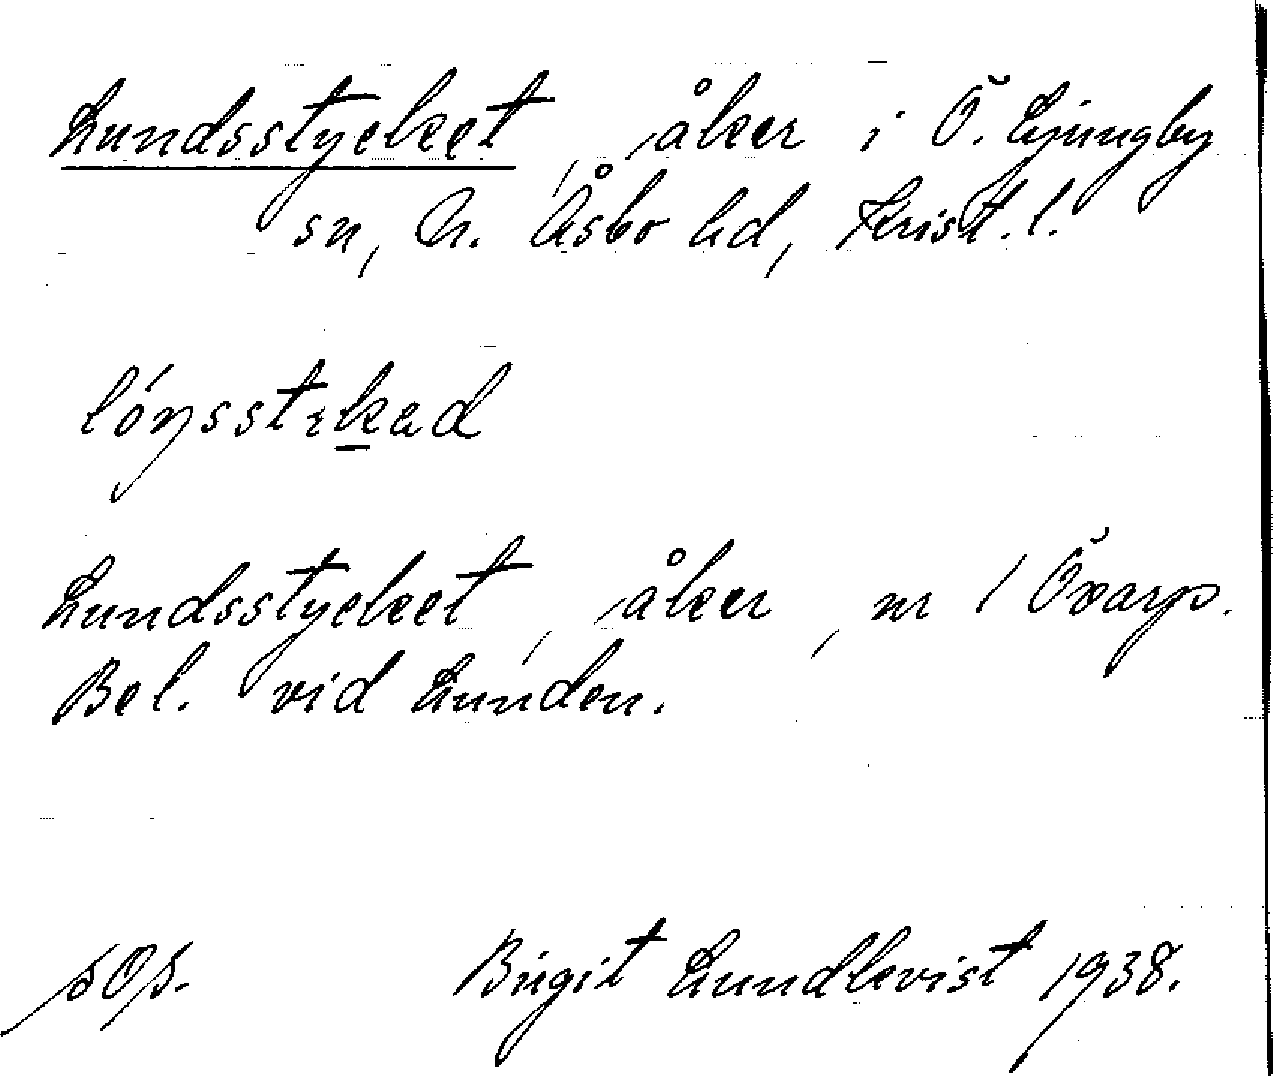 Lundsstycket, åker i Ö. Ljungby
sn, N. Åsbo hd, Krist. l.
lóŋsstɩkad
Lundsstycket, åker, nr 1 Öxarp.
Bel. vid Lunden.
Birgit Lundkvist 1938.